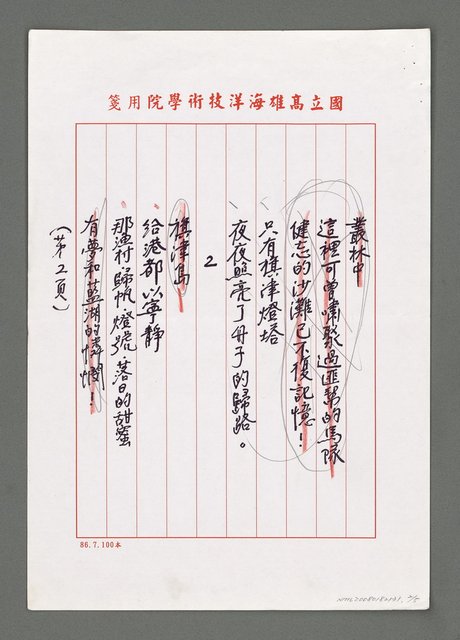 國立高雄海洋技術學院用箋
叢林中
這裡可曾嘯聚過匪幫的馬隊
健忘的沙灘已不復記憶！
只有旗津燈塔
夜夜照亮了舟子的歸路。
2
旗津島
給港都以寧靜
那漁村歸帆燈號，落日的甜蜜
有夢和藍湖的憐憫！
(第2頁)
86.7.100本